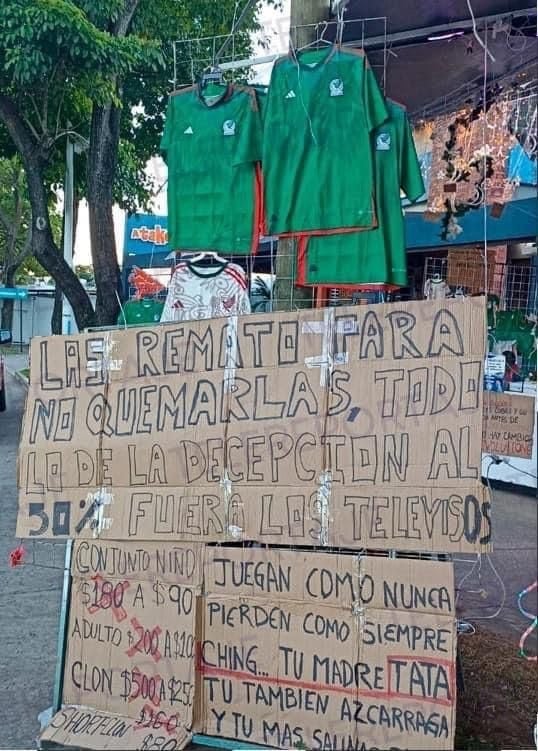 Atak
LAS REMATO PARA
NO QUEMARLAS, TODO
LO DE LA DECEPCION AL
50% FUERA LOS TELEVISOS
CONJUNTO NIÑO
$180 A $90
ADULTO $200 A $100
CLON $500 A $25
SHORT CLON $160
$80
JUEGAN COMO NUNCA
PIERDEN COMO SIEMPRE
CHING... TU MADRE TATA
TU TAMBIEN AZCARRAGA
Y TU MAS
ANTES DE
HAY CAMBIO